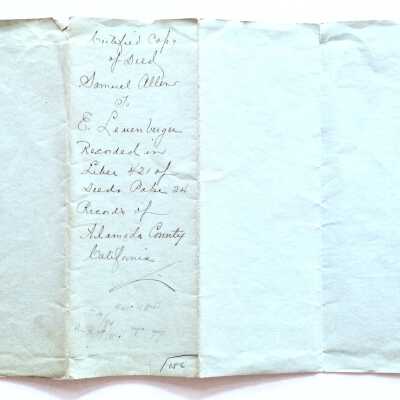 Certified Copy
of Deed
Samuel Allen
To
E. Leuenberger
Recorded in
Liber 421 of
Deeds Page 24
Records of
Alameda County
California